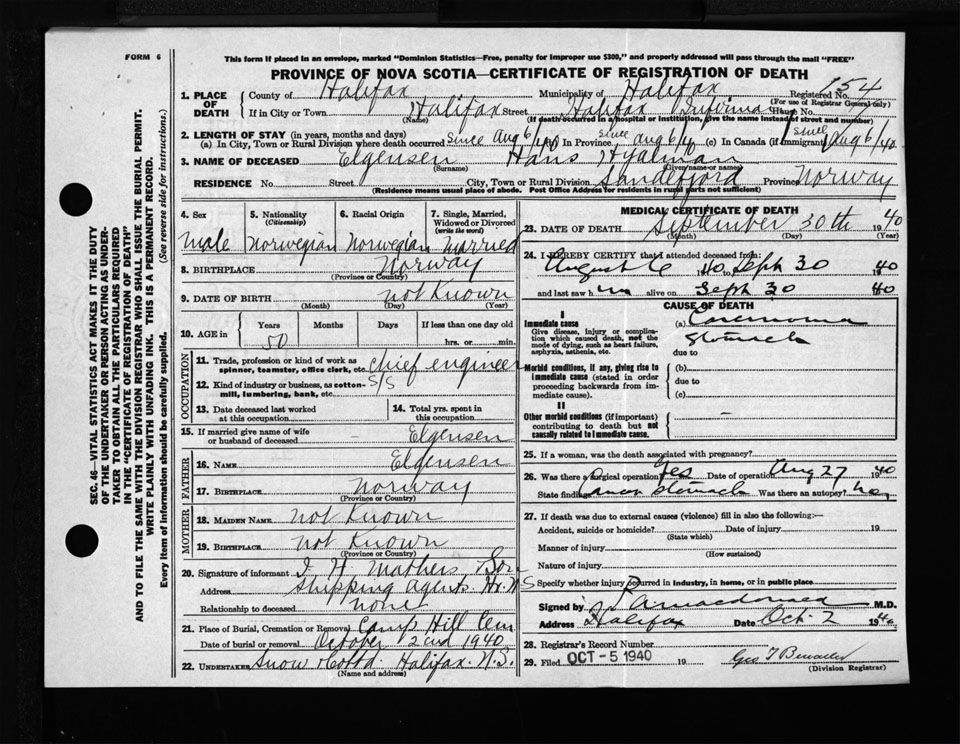 FORM 6
This form if placed in an envelope, marked "Dominion Statistics—Free, penalty for improper use $300," and properly addressed will pass through the mail "FREE"
PROVINCE OF NOVA SCOTIA—CERTIFICATE OF REGISTRATION OF DEATH
SEC. 46—VITAL STATISTICS ACT MAKES IT THE DUTY
OF THE UNDERTAKER OR PERSON ACTING AS UNDER-
TAKER TO OBTAIN ALL THE PARTICULARS REQUIRED
IN THE "CERTIFICATE OF REGISTRATION OF DEATH"
AND TO FILE THE SAME WITH THE DIVISION REGISTRAR WHO SHALL ISSUE THE BURIAL PERMIT.
WRITE PLAINLY WITH UNFADING INK. THIS IS A PERMANENT RECORD.
Every item of information should be carefully supplied. (See reverse side for instructions.)
1. PLACE OF DEATH
County of Halifax Municipality of Halifax Registered No. 54
(For use of Registrar General only)
If in City or Town Halifax Street Halifax Infirmary House No.
(Name) (If death occurred in a hospital or institution, give the name instead of street and number)
2. LENGTH OF STAY (in years, months and days)
(a) In City, Town or Rural Division where death occurred Since Aug 6/40 (b) In Province since Aug 6/40 (c) In Canada (if immigrant) since Aug 6/40
3. NAME OF DECEASED Elgensen Hans Hyalman
(Surname) (Given name or names)
RESIDENCE No. Street City, Town or Rural Division Sandefjord Province Norway
(Residence means usual place of abode. Post Office Address for residents in rural parts not sufficient)
4. Sex
Male
5. Nationality
(Citizenship)
Norwegian
6. Racial Origin
Norwegian
7. Single, Married,
Widowed or Divorced
(write the word)
Married
8. BIRTHPLACE Norway
(Province or Country)
9. DATE OF BIRTH not Known
(Month) (Day) (Year)
10. AGE in
Years Months Days If less than one day old
50 hrs. or min.
OCCUPATION
11. Trade, profession or kind of work as
spinner, teamster, office clerk, etc. chief engineer
12. Kind of industry or business, as cotton-
mill, lumbering, bank, etc. S/S
13. Date deceased last worked
at this occupation
14. Total yrs. spent in
this occupation
15. If married give name of wife
or husband of deceased Elgensen
FATHER
16. NAME Elgensen
17. BIRTHPLACE Norway
(Province or Country)
MOTHER
18. MAIDEN NAME not Known
19. BIRTHPLACE not Known
(Province or Country)
20. Signature of informant I. H. Mathers Son
Address Shipping Agents. Hx. N S
Relationship to deceased none
21. Place of Burial, Cremation or Removal Camp Hill Cem
Date of burial or removal October 2nd 1940
22. UNDERTAKER Snow & Co Ltd. Halifax. N.S.
(Name and address)
MEDICAL CERTIFICATE OF DEATH
23. DATE OF DEATH September 30th 1940
(Month) (Day) (Year)
24. I HEREBY CERTIFY that I attended deceased from:
August 6 1940 to Sept 30 1940
and last saw him alive on Sept 30 1940
CAUSE OF DEATH
I
Immediate cause
Give disease, injury or complica-
tion which caused death, not the
mode of dying, such as heart failure,
asphyxia, asthenia, etc.
(a) Carcinoma
Stomach
due to
Morbid conditions, if any, giving rise to
immediate cause (stated in order
proceeding backwards from im-
mediate cause).
(b)
due to
(c)
II
Other morbid conditions (if important)
contributing to death but not
causally related to immediate cause.
25. If a woman, was the death associated with pregnancy?
26. Was there a surgical operation? Yes Date of operation Aug 27 1940
State findings Stomach Was there an autopsy? no
27. If death was due to external causes (violence) fill in also the following:—
Accident, suicide or homicide? Date of injury 19
(State which)
Manner of injury
(How sustained)
Nature of injury
Specify whether injury occurred in industry, in home, or in public place
Signed by Macdonald M.D.
Address Halifax Date Oct. 2 1940
28. Registrar's Record Number
29. Filed OCT - 5 1940 19 Geo
(Division Registrar)